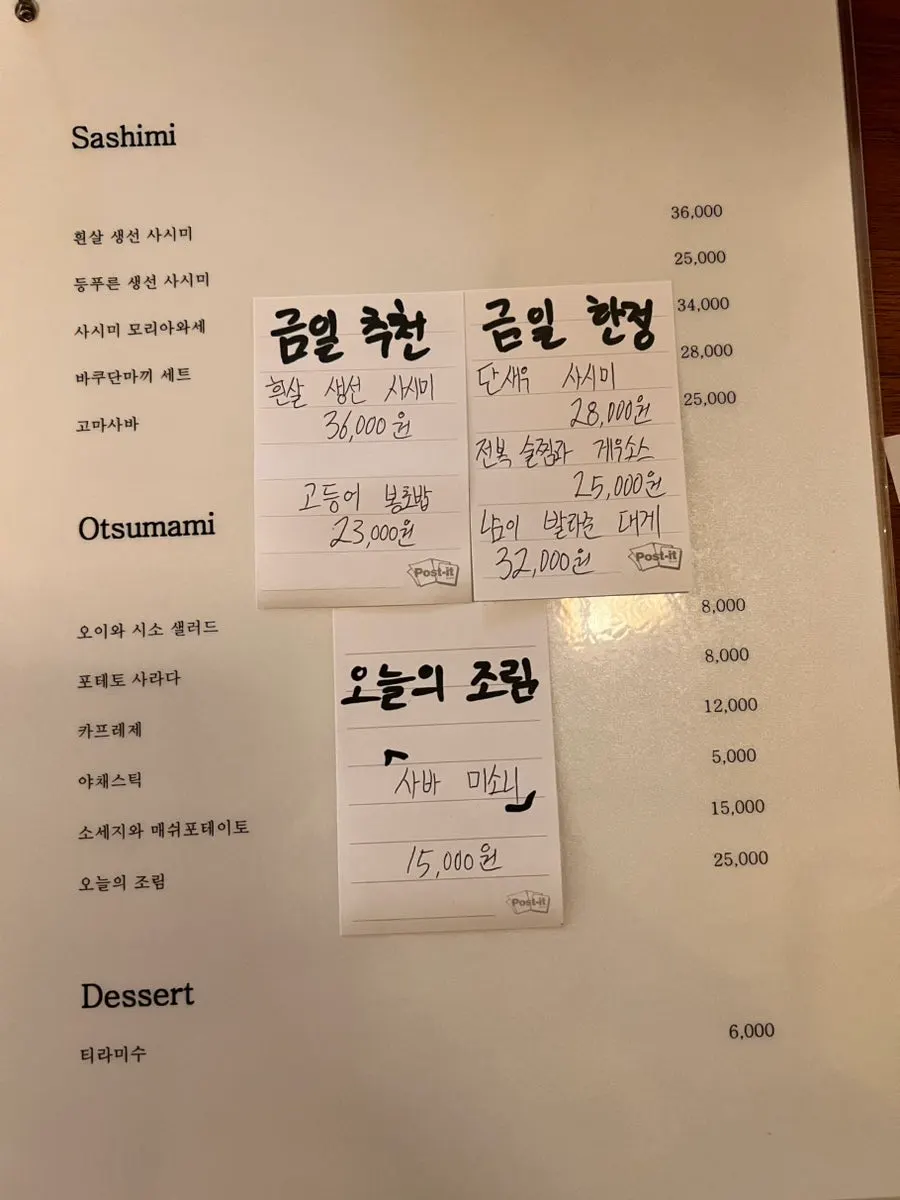 Sashimi
흰살 생선 사시미 36,000
등푸른 생선 사시미 25,000
사시미 모리아와세 34,000
바쿠단마끼 세트 28,000
고마사바 25,000
금일 추천
흰살 생선 사시미
36,000원
고등어 봉초밥
23,000원
Post-it
금일 한정
단새우 사시미
28,000원
전복 술찜과 게우소스
25,000원
남이 발라준 대게
32,000원
Post-it
Otsumami
오이와 시소 샐러드 8,000
포테토 사라다 8,000
카프레제 12,000
야채스틱 5,000
소세지와 매쉬포테이토 15,000
오늘의 조림 25,000
오늘의 조림
「사바 미소니」
15,000원
Post-it
Dessert
티라미수 6,000